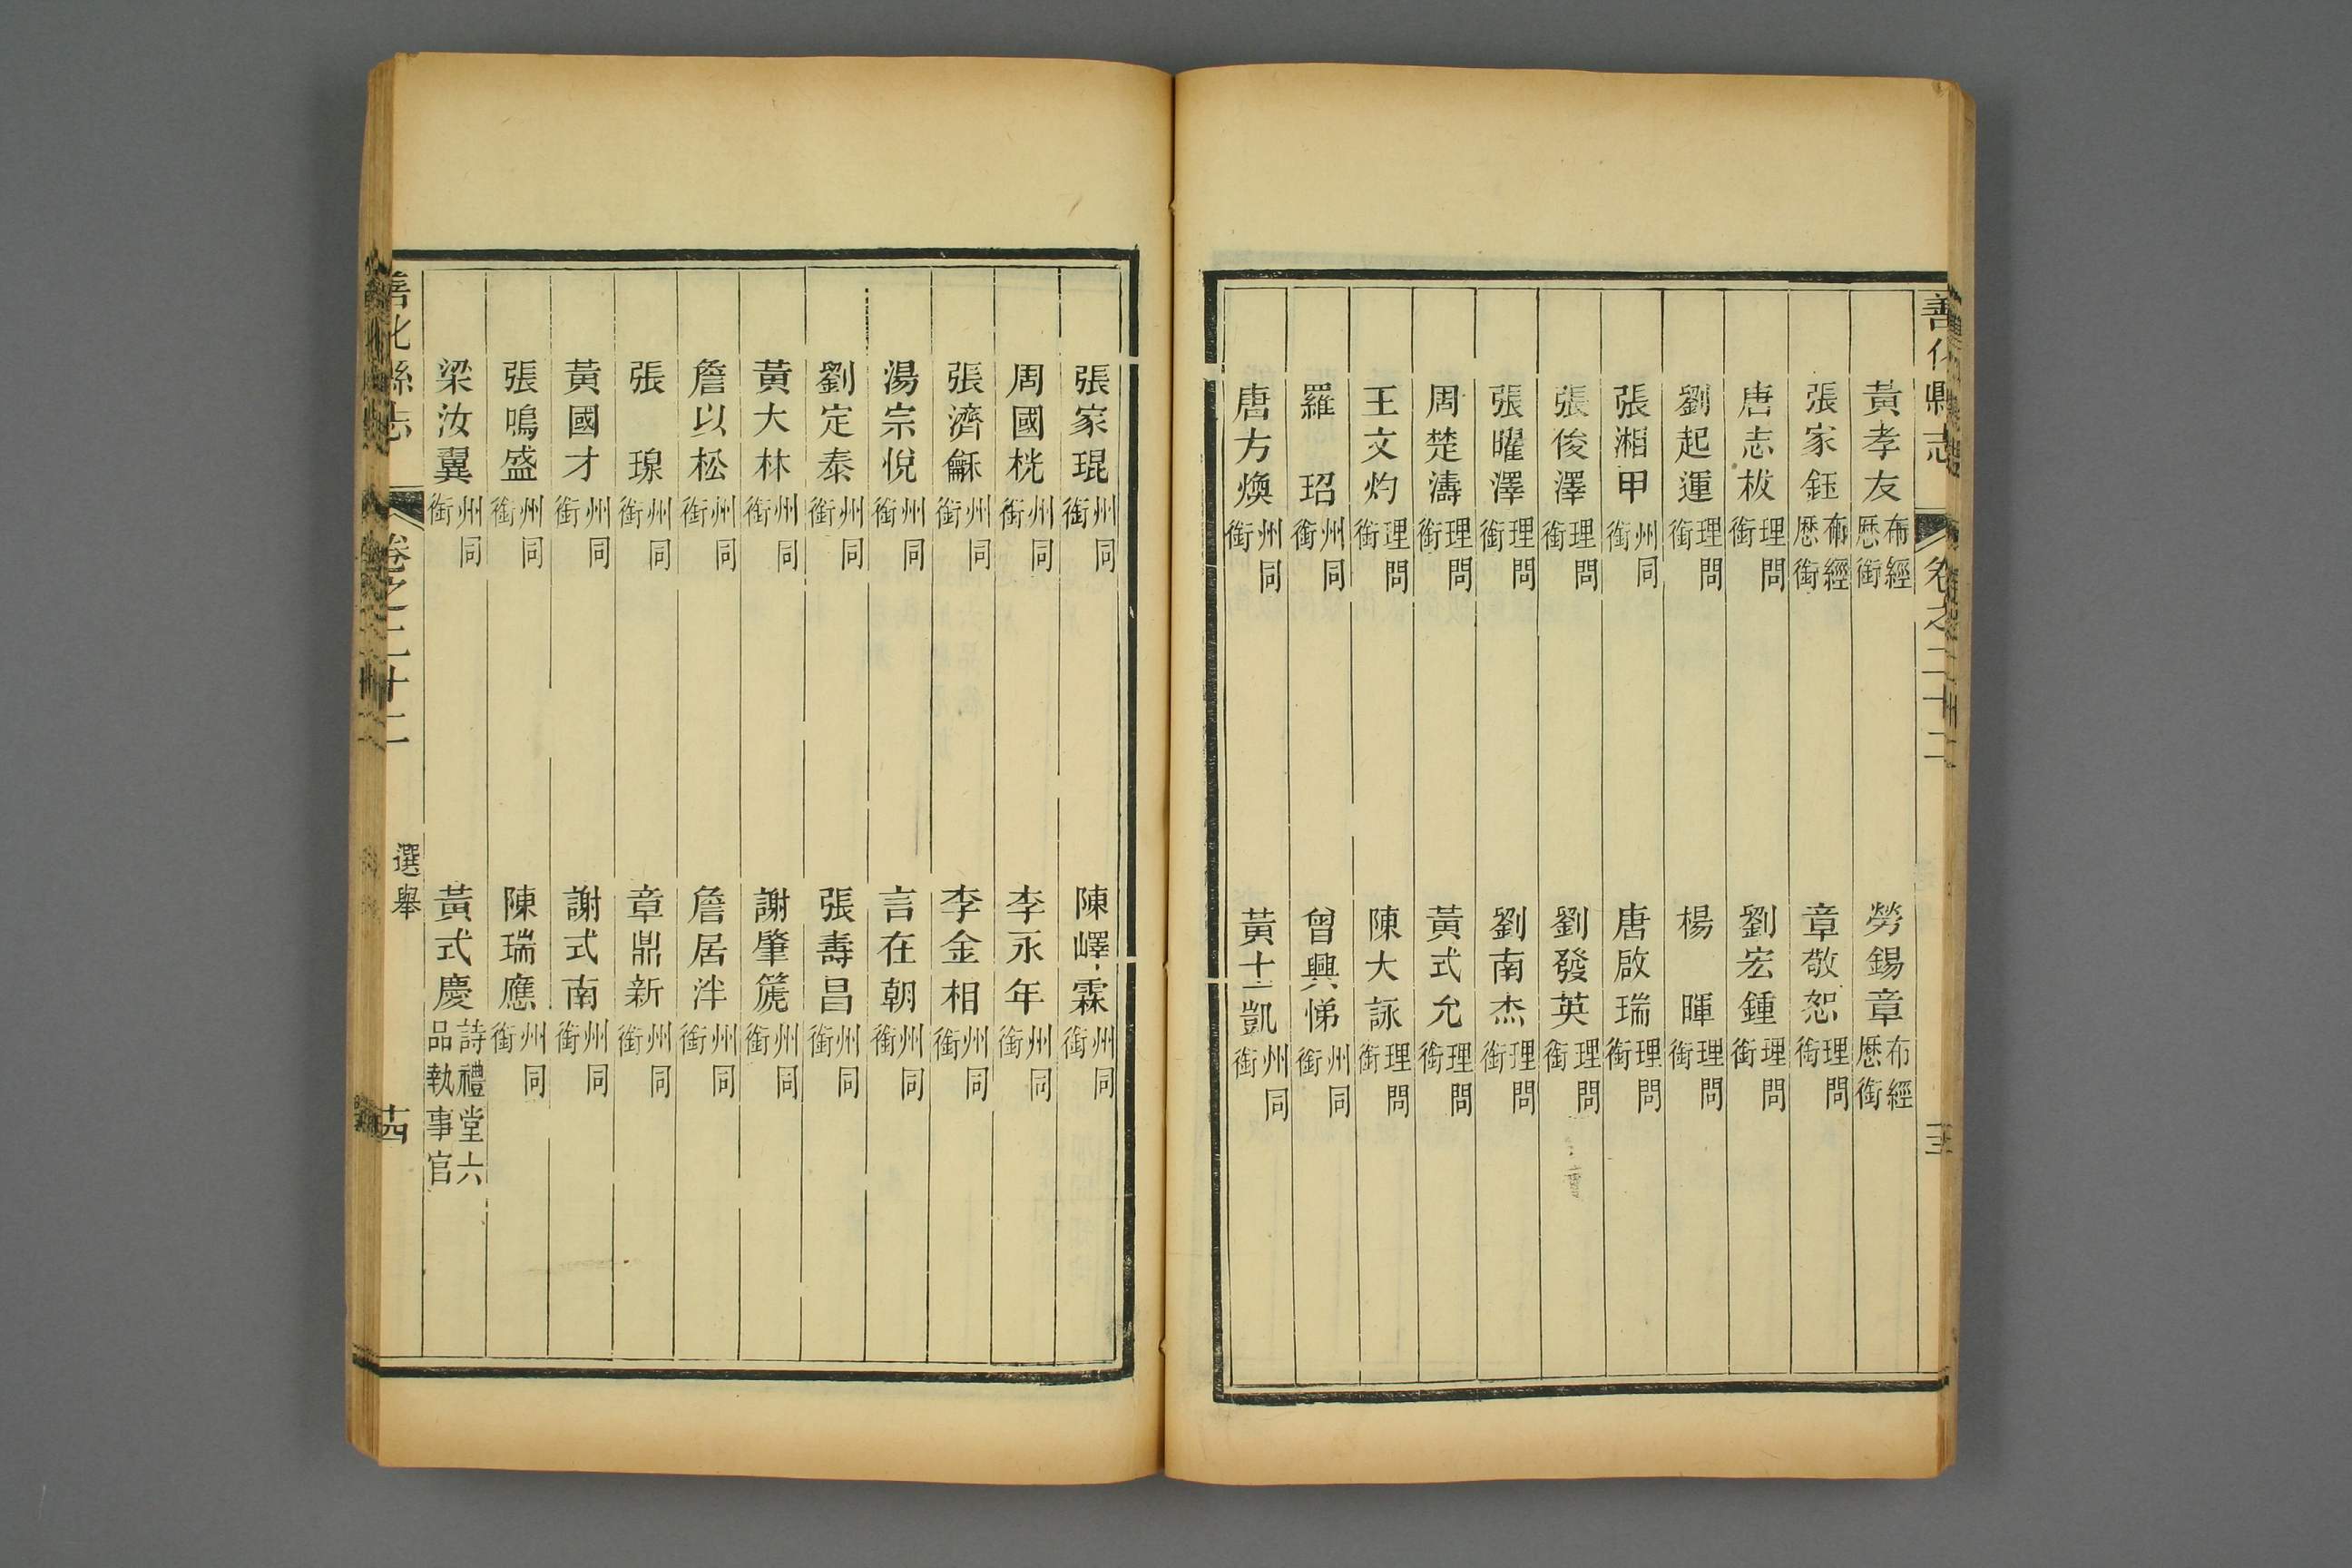 善化縣志 卷之二十二
黃孝友 布經歷銜 勞錫章 布經歷銜
張家鈺 布經歷銜 章敬恕 理問銜
唐志校 理問銜 劉宏鍾 理問銜
劉起運 理問銜 楊暉 理問銜
張湘甲 州同銜 唐啟瑞 理問銜
張俊澤 理問銜 劉發英 理問銜
張曜澤 理問銜 劉南杰 理問銜
周楚濤 理問銜 黃式允 理問銜
王文灼 理問銜 陳大詠 理問銜
羅玿 州同銜 曾興悌 州同銜
唐方煥 州同銜 黃士凱 州同銜
張家琨 州同銜 陳嶧霖 州同銜
周國桄 州同銜 李永年 州同銜
張濟龢 州同銜 李金相 州同銜
湯宗悅 州同銜 言在朝 州同銜
劉定泰 州同銜 張壽昌 州同銜
黃大林 州同銜 謝肇箎 州同銜
詹以松 州同銜 詹居泮 州同銜
張瑔 州同銜 章鼎新 州同銜
黃國才 州同銜 謝式南 州同銜
張鳴盛 州同銜 陳瑞應 州同銜
梁汝翼 州同銜 黃式慶 詩禮堂六品執事官
善化縣志 卷之二十二 選舉 十四